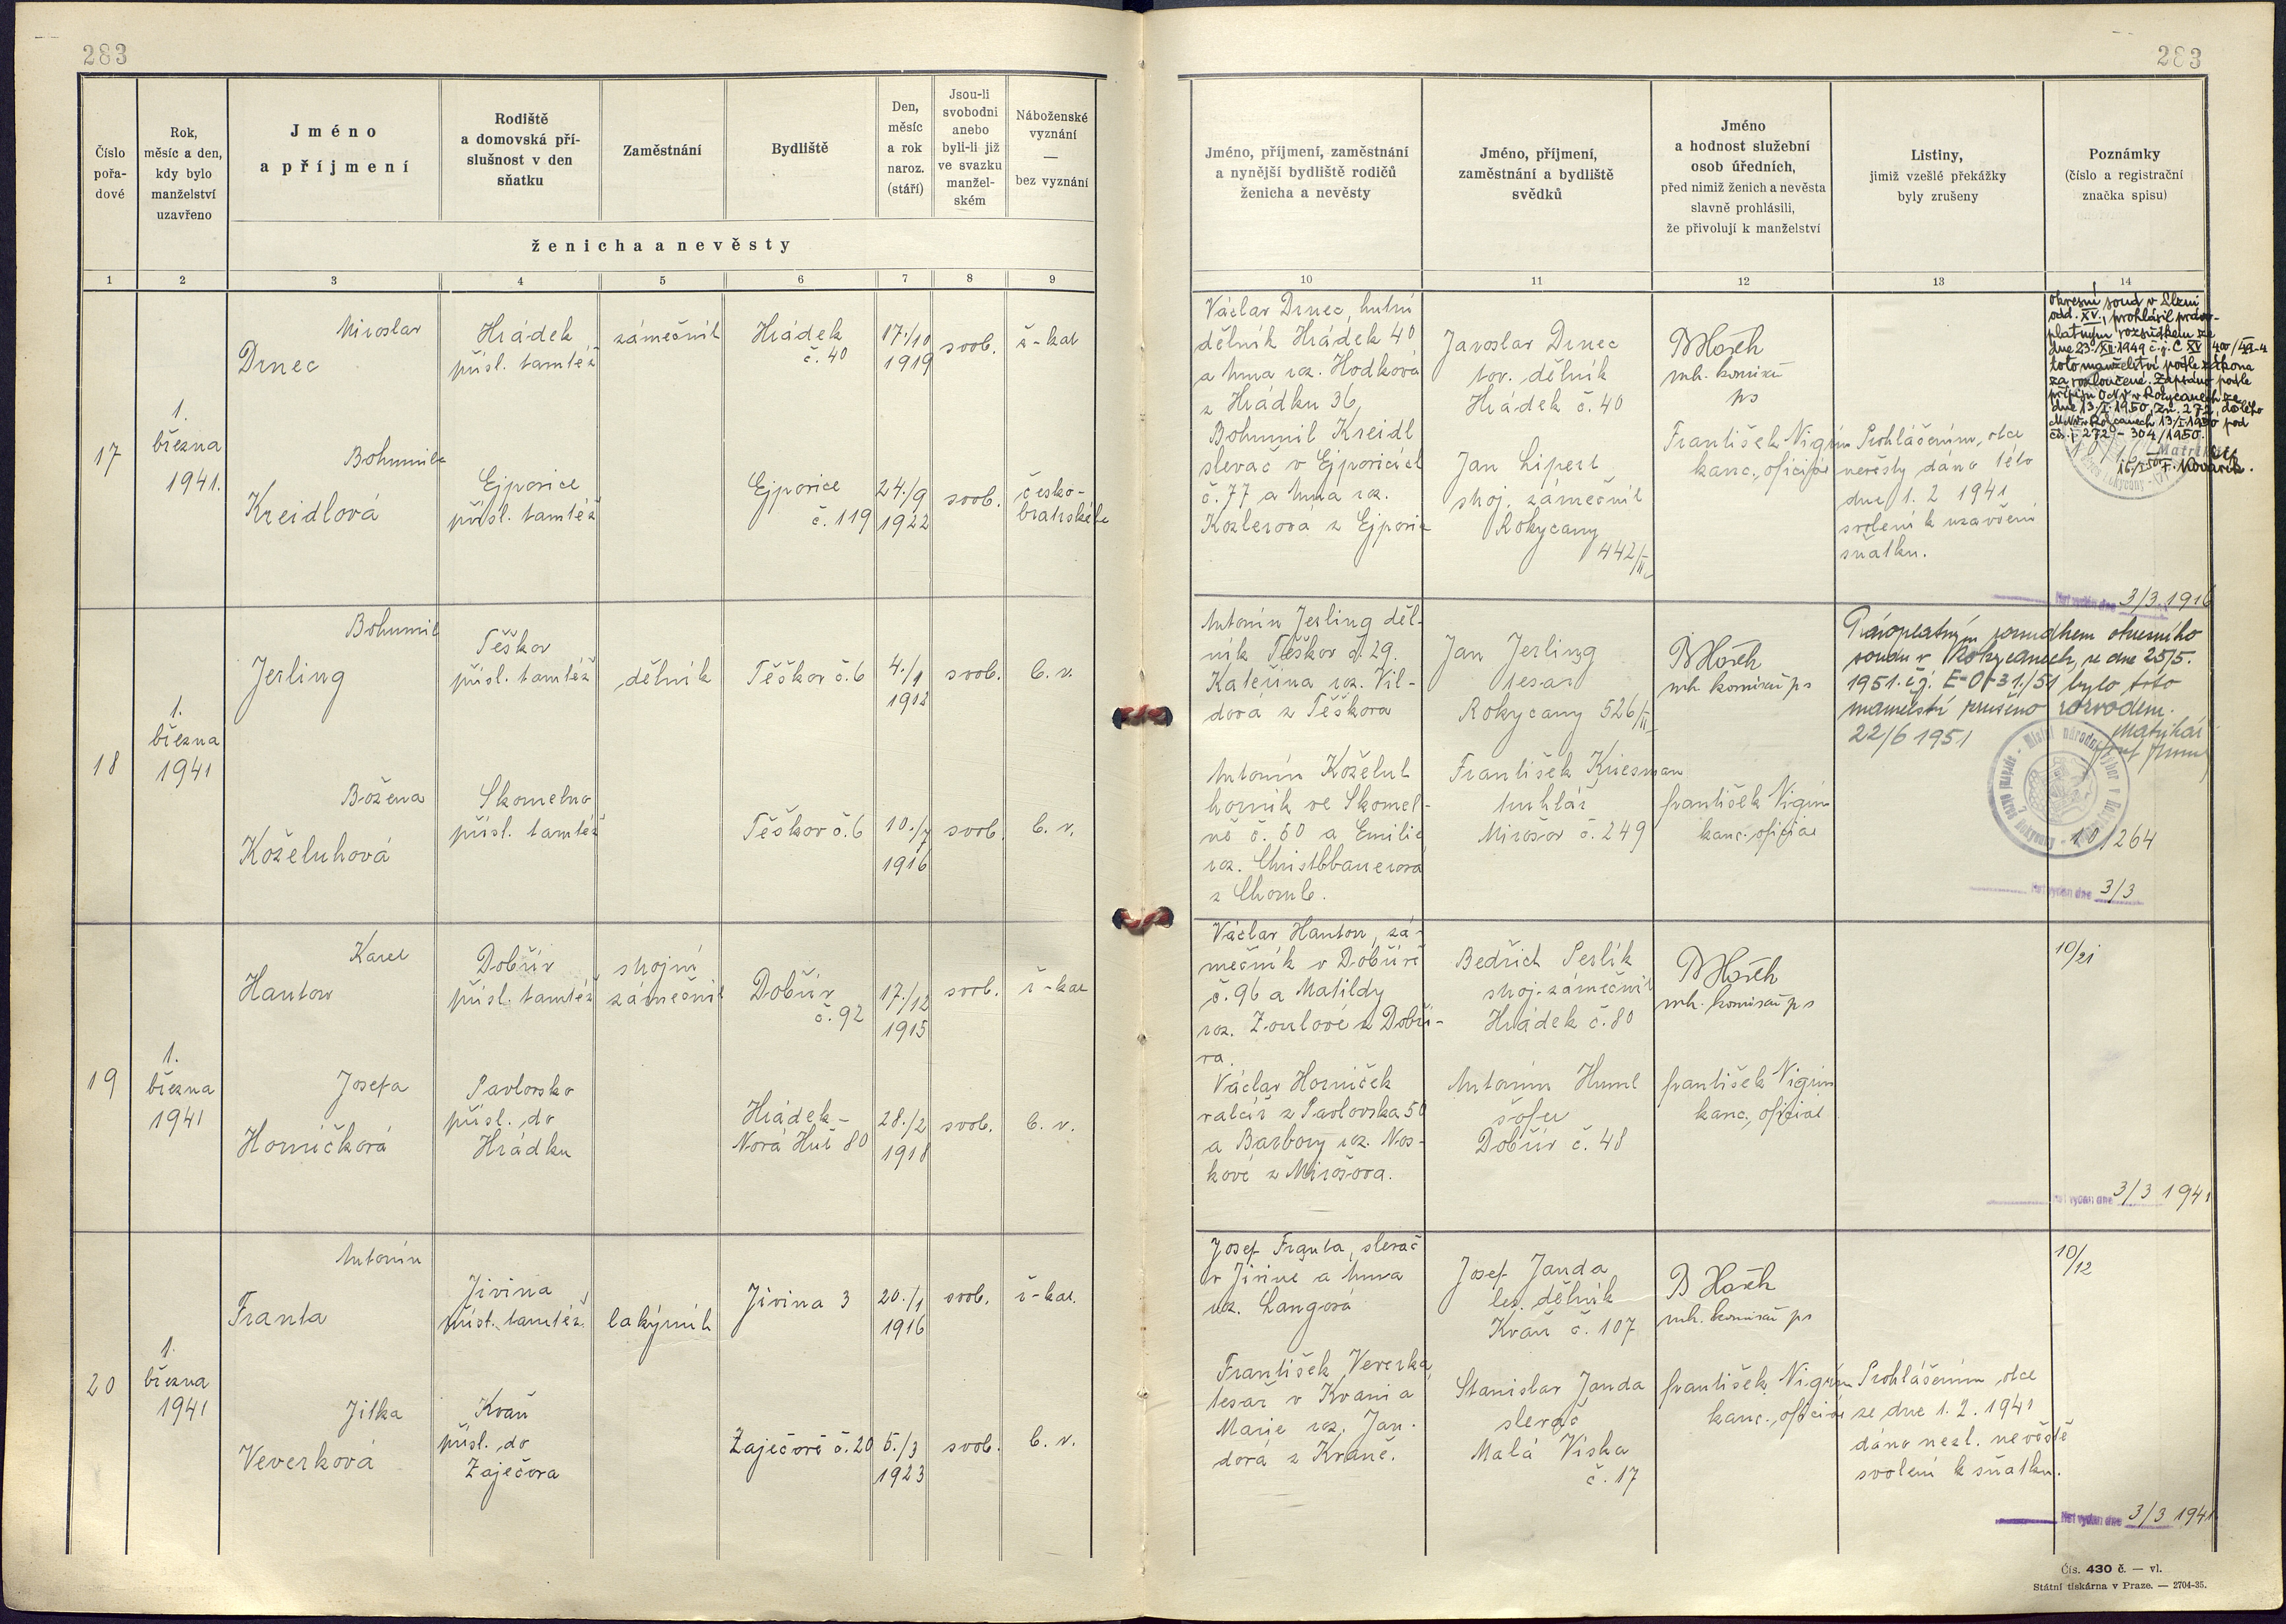 283
283
Číslo
pořa-
dové
Rok,
měsíc a den,
kdy bylo
manželství
uzavřeno
Jméno
a příjmení
Rodiště
a domovská pří-
slušnost v den
sňatku
Zaměstnání
Bydliště
Den,
měsíc
a rok
naroz.
(stáří)
Jsou-li
svobodni
anebo
byli-li již
ve svazku
manžel-
ském
Náboženské
vyznání
—
bez vyznání
ženicha a nevěsty
1 2 3 4 5 6 7 8 9
Jméno, příjmení, zaměstnání
a nynější bydliště rodičů
ženicha a nevěsty
Jméno, příjmení,
zaměstnání a bydliště
svědků
Jméno
a hodnost služební
osob úředních,
před nimiž ženich a nevěsta
slavně prohlásili,
že přivolují k manželství
Listiny,
jimiž vzešlé překážky
byly zrušeny
Poznámky
(číslo a registrační
značka spisu)
10 11 12 13 14
17
1.
března
1941.
Miroslav
Drnec
Hrádek
přísl. tamtéž
zámečník
Hrádek
č. 40
17./10
1919
svob.
ř-kat
Bohumila
Kreidlová
Ejpovice
přísl. tamtéž
Ejpovice
č. 119
24./9
1922
svob.
česko-
bratrské
Václav Drnec, hutní
dělník Hrádek 40
a Anna roz. Hodková
z Hrádku 36,
Bohumil Kreidl
slevač v Ejpovicích
č. 77 a Anna roz.
Kozlerová z Ejpovic
Jaroslav Drnec
tov. dělník
Hrádek č. 40
Jan Lipert
stroj. zámečník
Rokycany
442/II
BHořh
vlh. komisař
ps
František Nigrin
kanc. oficiál
Prohlášením, otce
nevěsty dáno této
dne 1. 2 1941
svolení k uzavření
sňatku.
Okresní soud v Plzni
odd. XV., prohlásil pravo-
platným rozsudkem ze
dne 23./XII.1949 č. j. C XV 400/49-4
toto manželství podle zákona
za rozloučené. Zapsáno podle
přípisu ONV v Rokycanech ze
dne 13/I.1950, zn. 272, došlého
13/I.1950 pod
čs. j. 272 - 304/1950.
F. Kovařík.
List vydán dne 3/3 1916
18
1.
března
1941
Bohumil
Jerling
Těškov
přísl. tamtéž
dělník
Těškov č. 6
4./1
1912
svob.
b. v.
Božena
Koželuhová
Skomelno
přísl. tamtéž
Těškov č. 6
10./7
1916
svob.
b. v.
Antonín Jerling děl-
ník Těškov č. 29.
Kateřina roz. Vil-
dová z Těškova
Antonín Koželuh
horník ve Skomel-
ně č. 60 a Emilie
roz. Christbbauerová
z Chomle.
Jan Jerling
tesař
Rokycany 526/II
František Kriesman
truhlář
Mirošov č. 249
BHořh
vlh. komisař ps
František Nigrin
kanc. oficiál
Pravoplatným rozsudkem okresního
soudu v Rokycanech, ze dne 25/5.
1951. č.j. bylo toto
manželství zrušeno rozvodem.
22/6 1951
Matrikář
10/264
List vydán dne 3/3
19
1.
března
1941
Karel
Hanton
Dobřív
přísl. tamtéž
strojní
zámečník
Dobřív
č. 92
17./12
1915
svob.
ř-kat
Josefa
Horničková
Pavlovsko
přísl. do
Hrádku
Hrádek-
Nová Huť 80
28./2
1918
svob.
b. v.
Václav Hanton, zá-
mečník v Dobřívě
č. 96 a Matildy
roz. Zoulové z Dobří-
va.
Václav Horníček
valcíř z Pavlovska 50
a Barbory roz. Nos-
kové z Mirošova.
Bedřich Perlík
stroj. zámečník
Hrádek č. 80
Antonín Huml
šofér
Dobřív č. 48
BHořh
vlh. komisař ps
František Nigrin
kanc. oficiál
10/21
List vydán dne 3/3 1941
20
1.
března
1941
Antonín
Franta
Jivina
přísl. tamtéž
lakýrník
Jivina 3
20./1
1916
svob.
ř-kat.
Jitka
Veverková
Kváň
přísl. do
Zaječova
Zaječov č. 20
5./3
1923
svob.
b. v.
Josef Franta, slevač
v Jivině a Anna
roz. Langová
František Veverka
tesař v Kváni a
Marie roz. Jan-
dová z Kváně.
Josef Janda
les. dělník
Kváň č. 107
Stanislav Janda
slevač
Malá Víska
č. 17
B Hořh
vlh. komisař ps
František Nigrin
kanc. oficiál
Prohlášením otce
ze dne 1. 2. 1941
dáno nezl. nevěstě
svolení k sňatku.
10/12
List vydán dne 3/3 1941
Čís. 430 č. — vl.
Státní tiskárna v Praze. — 2704-35.